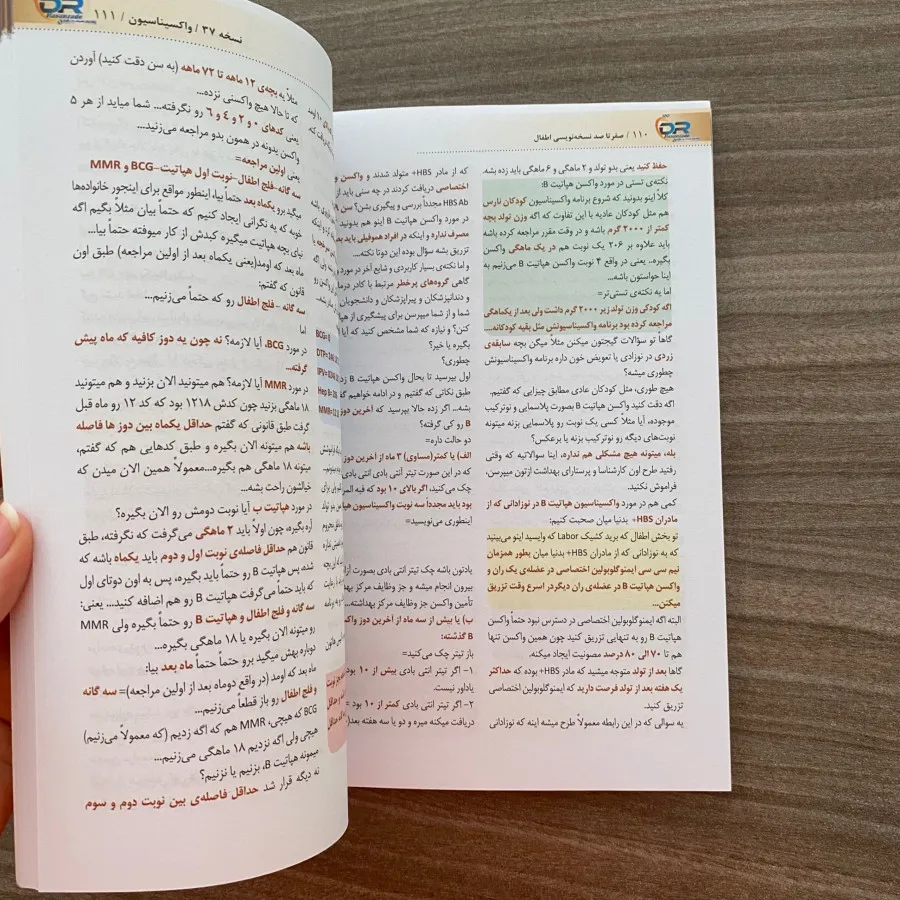 ۱۱۰ / صفر تا صد نسخه‌نویسی اطفال
حفظ کنید یعنی بدو تولد و ۲ ماهگی و ۶ ماهگی باید زده بشه.
نکته‌ی تستی در مورد واکسن هپاتیت B:
کلاً اینو بدونید که شروع برنامه واکسیناسیون کودکان نارس
هم مثل کودکان عادیه با این تفاوت که اگه وزن تولد بچه
کمتر از ۲۰۰۰ گرم باشه و در وقت مقرر مراجعه کرده باشه
باید علاوه بر ۲۰۶ یک نوبت هم در یک ماهگی واکسن
بگیره.. یعنی در واقع ۴ نوبت واکسن هپاتیت B می‌زنیم به
اینا حواستون باشه...
اما یه نکته‌ی تستی‌تر=
اگه کودکی وزن تولد زیر ۲۰۰۰ گرم داشت ولی بعد از یکماهگی
مراجعه کرده بود برنامه واکسیناسیونش مثل بقیه کودکانه...
گاهاً تو سؤالات گیجتون میکنن مثلاً میگن بچه سابقه‌ی
زردی در نوزادی یا تعویض خون داره برنامه واکسیناسیونش
چطوری میشه؟
هیچ طوری، مثل کودکان عادی مطابق چیزایی که گفتیم.
اگه دقت کنید واکسن هپاتیت B بصورت پلاسمایی و نوترکیب
موجوده، آیا مثلاً کسی یک نوبت رو پلاسمایی بزنه میتونه
نوبت‌های دیگه رو نوترکیب بزنه یا برعکس؟
بله، میتونه هیچ مشکلی هم نداره، اینا سوالاتیه که وقتی
رفتید طرح اون کارشناسا و پرستارای بهداشت ازتون میپرسن،
فراموش نکنید.
کمی هم در مورد واکسیناسیون هپاتیت B در نوزادانی که از
مادران HBS+ بدنیا میان صحبت کنیم:
تو بخش اطفال که برید کشیک Labor که وایسید اینو می‌بینید
که به نوزادانی که از مادران HBS+ بدنیا میان بطور همزمان
نیم سی سی ایمنوگلوبولین اختصاصی در عضله‌ی یک ران و
واکسن هپاتیت B در عضله‌ی ران دیگردر اسرع وقت تزریق
میکنن...
البته اگه ایمنوگلوبولین اختصاصی در دسترس نبود حتماً واکسن
هپاتیت B رو به تنهایی تزریق کنید چون همین واکسن تنها
هم تا ۷۰ الی ۸۰ درصد مصونیت ایجاد میکنه.
گاها بعد از تولد متوجه میشید که مادر HBS+ بوده که حداکثر
یک هفته بعد از تولد فرصت دارید که ایمنوگلوبولین اختصاصی
تزریق کنید.
یه سوالی که در این رابطه معمولاً طرح میشه اینه که نوزادانی
که از مادر HBS+ متولد شدند و واکسن و
اختصاصی دریافت کردند در چه سنی باید از
HBS Ab مجدداً بررسی و پیگیری بشن؟ سن
در مورد واکسن هپاتیت B اینو هم بدونید
مصرف نداره و اینکه در افراد هموفیلی باید
تزریق بشه سؤال بوده این دوتا نکته...
و اما نکته‌ی بسیار کاربردی و شایع آخر در مورد
گاهی گروه‌های پرخطر مرتبط با کادر درما
و دندانپزشکان و پیراپزشکان و دانشجویان
شما و از شما میپرسن برای پیشگیری از هپا
کنن؟ و نیازه که شما مشخص کنید که آیا
بگیره یا خیر؟
چطوری؟
اول بپرسید تا بحال واکسن هپاتیت B زد
طبق نکاتی که گفتیم و در ادامه خواهیم
بشه... اگر زده حالا بپرسید که آخرین دوز
B رو کی گرفته؟
دو حالت داره=
الف) یا کمتر(مساوی) ۳ ماه از آخرین دوز
که در این صورت تیتر آنتی بادی آنتی بادی
چک می‌کنید، اگر بالای ۱۰ بود که فبه الم
بود باید مجدداً سه نوبت واکسیناسیون هپا
اینطوری می‌نویسید=
یادتون باشه چک تیتر انتی بادی بصورت
بیرون انجام میشه و جز وظایف مرکز به
تأمین واکسن جز وظایف مرکز بهداشته...
ب) یا بیش از سه ماه از آخرین دوز واکس
B گذشته:
باز تیتر چک می‌کنیم:
۱- اگر تیتر انتی بادی بیش از ۱۰ بود
یادآور نیست.
۲- اگر تیتر انتی بادی کمتر از ۱۰ بود =
دریافت میکنه میره و دو یا سه هفته بعد
نسخه ۳۷ / واکسیناسیون / ۱۱۱
مثلاً یه بچه‌ی ۱۲ ماهه تا ۷۲ ماهه (به سن دقت کنید) آوردن
که تا حالا هیچ واکسنی نزده...
یعنی کدهای ۰ و ۲ و ٤ و ٦ رو نگرفته... شما میاید از هر ۵
واکس بدونه در همون بدو مراجعه می‌زنید...
یعنی اولین مراجعه=
سه گانه-فلج اطفال-نوبت اول هپاتیت-BCG و MMR
میگید برو یکماه بعد حتماً بیا، اینطور مواقع برای اینجور خانواده‌ها
خوبه که یه نگرانی ایجاد کنیم که حتماً بیان مثلاً بگیم اگه
نیای بچه هپاتیت میگیره کبدش از کار میوفته حتماً بیا...
ماه بعد که اومد(یعنی یکماه بعد از اولین مراجعه) طبق اون
قانون که گفتم:
سه گانه -فلج اطفال رو که حتماً می‌زنیم...
اما
در مورد BCG، آیا لازمه؟ نه چون یه دوز کافیه که ماه پیش
گرفته...
در مورد MMR آیا لازمه؟ هم میتونید الان بزنید و هم میتونید
۱۸ ماهگی بزنید چون کدش ۱۲۱۸ بود که کد ۱۲ رو ماه قبل
گرفت طبق قانونی که گفتم حداقل یکماه بین دوز ها فاصله
باشه هم میتونه الان بگیره و طبق کدهایی هم که گفتم،
میتونه ۱۸ ماهگی هم بگیره...معمولاً همین الان میدن که
خیالشون راحت بشه...
در مورد هپاتیت ب آیا نوبت دومش رو الان بگیره؟
آره بگیره، چون اولاً باید ۲ ماهگی می‌گرفت که نگرفته، طبق
قانون هم حداقل فاصله‌ی نوبت اول و دوم باید یکماه باشه که
شده، پس هپاتیت B رو حتماً باید بگیره، پس به اون دوتای اول
که باید حتماً می‌گرفت هپاتیت B رو هم اضافه کنید... یعنی:
سه گانه و فلج اطفال و هپاتیت B رو حتماً بگیره ولی MMR
رو میتونه الان بگیره یا ۱۸ ماهگی بگیره...
دوباره بهش میگید برو حتماً حتماً ماه بعد بیا:
ماه بعد که اومد (در واقع دوماه بعد از اولین مراجعه)= سه گانه
و فلج اطفال رو باز قطعاً می‌زنیم...
BCG که هیچی، MMR هم که اگه زدیم (که معمولاً می‌زنیم)
هیچی ولی اگه نزدیم ۱۸ ماهگی می‌زنیم...
میمونه هپاتیت B، بزنیم یا نزنیم؟
نه دیگه قرار شد حداقل فاصله‌ی بین نوبت دوم و سوم